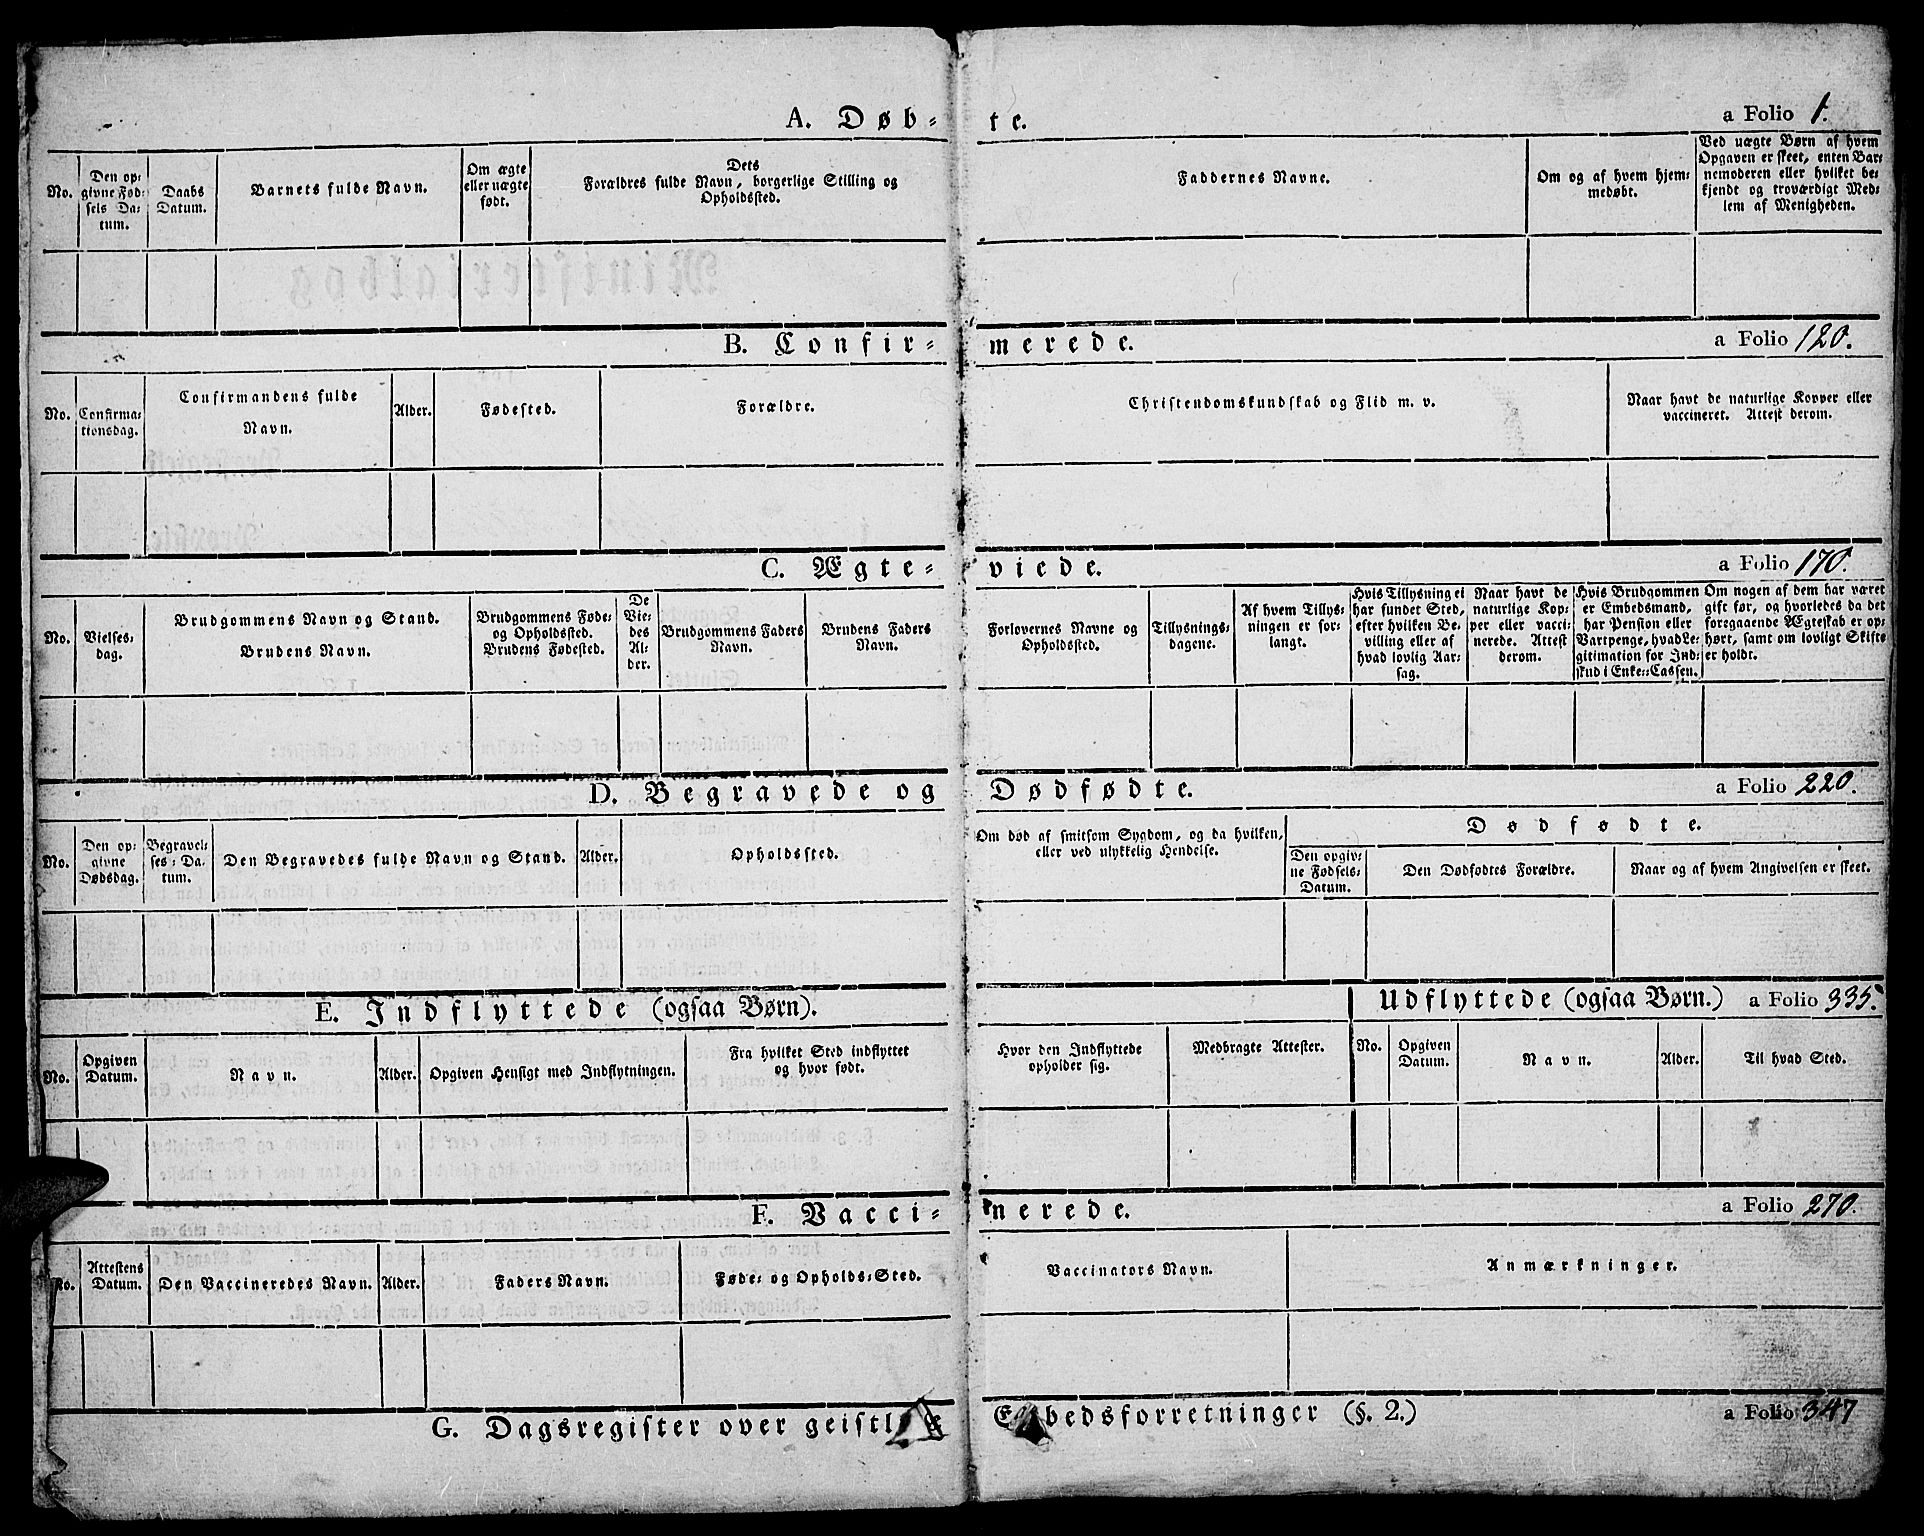 A. Døb-te. a Folio 1.
No.
Den op-
givne Fød-
sels Da-
tum.
Daabs
Datum.
Barnets fulde Navn.
Om ægte
eller uægte
født.
Dets
Forældres fulde Navn, borgerlige Stilling og
Opholdssted.
Faddernes Navne.
Om og af hvem hjem-
medøbt.
Ved uægte Børn af hvem
Opgaven er skeet, enten Bar-
nemoderen eller hvilket be-
kjendt og troværdigt Med-
lem af Menigheden.
B. Confir-merede. a Folio 120.
No.
Confirma-
tionsdag.
Confirmandens fulde
Navn.
Alder.
Fødested.
Forældre.
Christendomskundskab og Flid m. v.
Naar havt de naturlige Kopper eller
vaccineret. Attest derom.
C. Ægte-viede. a Folio 170.
No.
Vielses-
dag.
Brudgommens Navn og Stand.
Brudens Navn.
Brudgommens Føde-
og Opholdssted.
Brudens Fødested.
De
Vie-
des
Al-
der.
Brudgommens Faders
Navn.
Brudens Faders
Navn.
Forlovernes Navne og
Opholdssted.
Tillysnings-
dagene.
Af hvem Tillys-
ningen er for-
langt.
Hvis Tillysning ei
har fundet Sted,
efter hvilken Be-
villing eller af
hvad lovlig Aar-
sag.
Naar havt de
naturlige Kop-
per eller vacci-
nerede. Attest
derom.
Hvis Brudgommen
er Embedsmand,
har Pension eller
Vartpenge, hvad Le-
gitimation for Ind-
skud i Enke-Cassen.
Om nogen af dem har været
gift før, og hvorledes da det
foregaaende Ægteskab er op-
hørt, samt om lovligt Skifte
er holdt.
D. Begravede og Dødfødte. a Folio 220.
No.
Den op-
givne
Dødsdag.
Begravel-
ses-Da-
tum.
Den Begravedes fulde Navn og Stand.
Alder.
Opholdssted.
Om død af smitsom Sygdom, og da hvilken,
eller ved ulykkelig Hendelse.
Dødfødte.
Den opgiv-
ne Fødsels-
Datum.
Den Dødfødtes Forældre.
Naar og af hvem Angivelsen er skeet.
E. Indflyttede (ogsaa Børn). Udflyttede (ogsaa Børn.) a Folio 335.
No.
Opgiven
Datum.
Navn.
Alder.
Opgiven Hensigt med Indflytningen.
Fra hvilket Sted indflyttet
og hvor født.
Hvor den Indflyttede
opholder sig.
Medbragte Attester.
No.
Opgiven
Datum.
Navn.
Alder.
Til hvad Sted.
F. Vacci-nerede. a Folio 270.
No.
Attestens
Datum.
Den Vaccineredes Navn.
Alder.
Faders Navn.
Føde- og Opholds-Sted.
Vaccinators Navn.
Anmærkninger.
G. Dagsregister over geistlige Embedsforretninger (§. 2.) a Folio 347